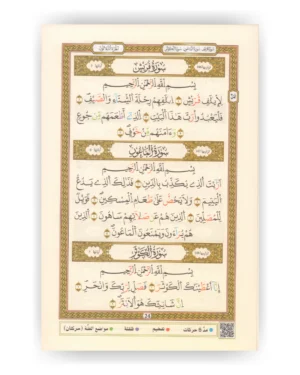 سُورَةُ قُرَيْشٍ
بِسْمِ اللَّهِ الرَّحْمَٰنِ الرَّحِيمِ
لِإِيلَٰفِ قُرَيْشٍ إِۦلَٰفِهِمْ رِحْلَةَ الشِّتَاءِ وَالصَّيْفِ
فَلْيَعْبُدُوا رَبَّ هَٰذَا الْبَيْتِ الَّذِي أَطْعَمَهُم مِّن جُوعٍ
وَءَامَنَهُم مِّنْ خَوْفٍ
سُورَةُ الْمَاعُونِ
بِسْمِ اللَّهِ الرَّحْمَٰنِ الرَّحِيمِ
أَرَءَيْتَ الَّذِي يُكَذِّبُ بِالدِّينِ فَذَٰلِكَ الَّذِي يَدُعُّ
الْيَتِيمَ وَلَا يَحُضُّ عَلَىٰ طَعَامِ الْمِسْكِينِ فَوَيْلٌ
لِّلْمُصَلِّينَ الَّذِينَ هُمْ عَن صَلَاتِهِمْ سَاهُونَ الَّذِينَ
هُمْ يُرَاءُونَ وَيَمْنَعُونَ الْمَاعُونَ
سُورَةُ الْكَوْثَرِ
بِسْمِ اللَّهِ الرَّحْمَٰنِ الرَّحِيمِ
إِنَّا أَعْطَيْنَٰكَ الْكَوْثَرَ فَصَلِّ لِرَبِّكَ وَانْحَرْ
إِنَّ شَانِئَكَ هُوَ الْأَبْتَرُ
24
مدّ 6 حركات تفخيم قلقلة مواضع الغنّة (حركتان)